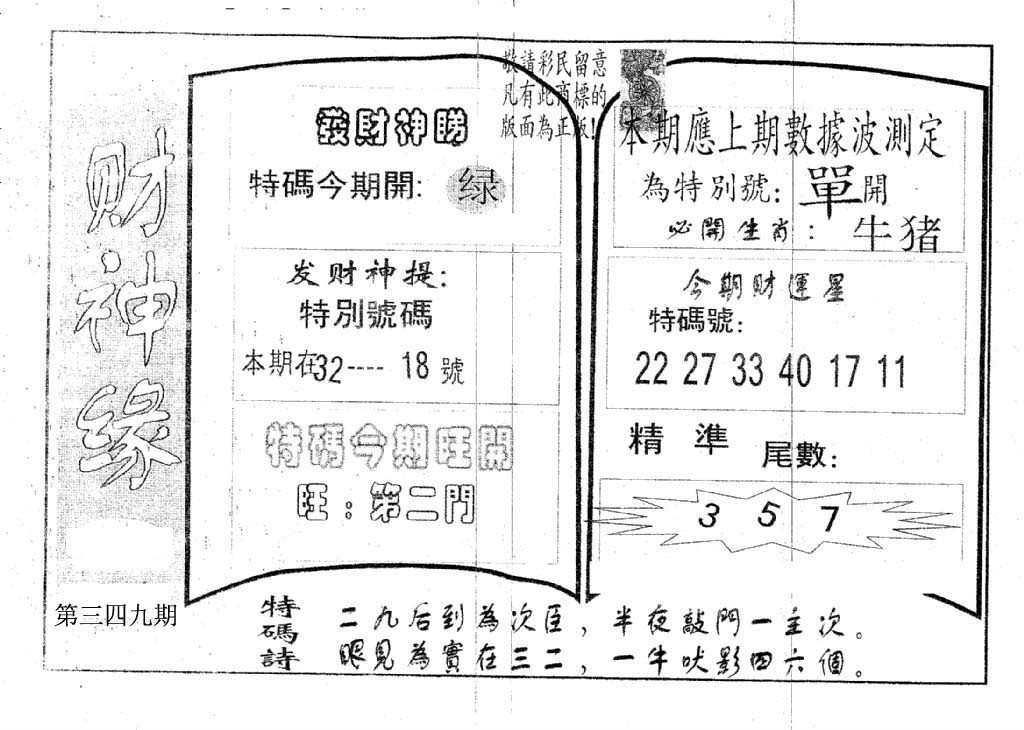 财神缘
第三四九期
敬請彩民留意
凡有此商標的
版面為正版!
發財神睇
特碼今期開: 绿
发财神提:
特別號碼
本期在32----18號
特碼今期旺開
旺:第二門
本期應上期數據波測定
為特別號:單開
必開生肖: 牛猪
今期財運星
特碼號:
22 27 33 40 17 11
精準 尾數:
3 5 7
特碼詩
二九后到為次臣,半夜敲門一主次。
眼見為實在三二,一牛吠影四六個。